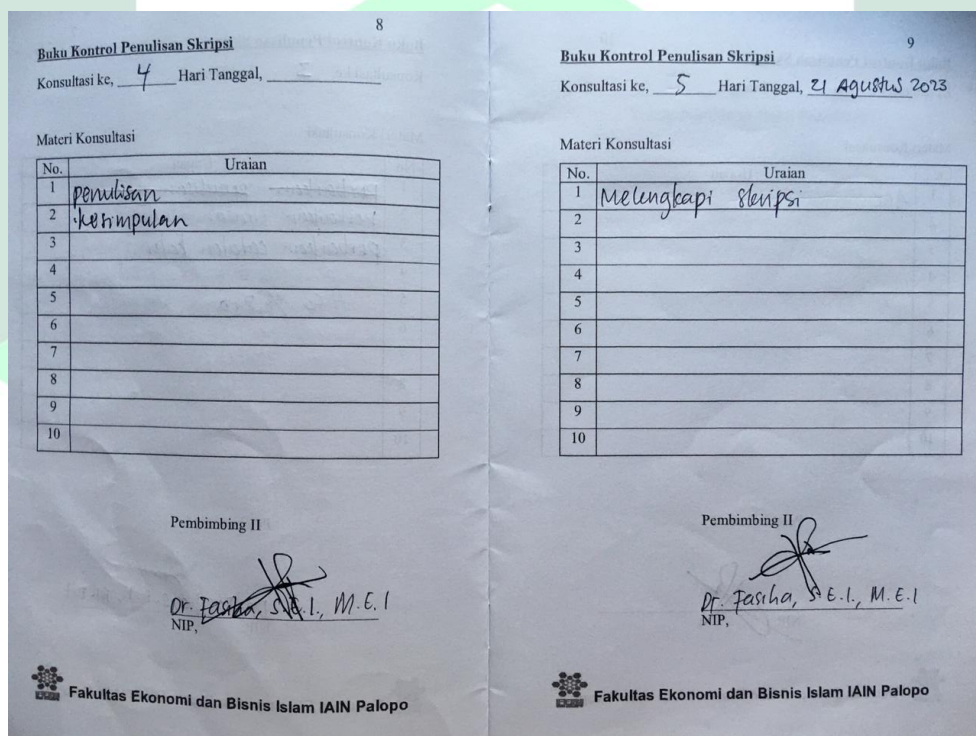 8
Buku Kontrol Penulisan Skripsi
Konsultasi ke, 4 Hari Tanggal,
Materi Konsultasi
No. Uraian
1 penulisan
2 kesimpulan
3
4
5
6
7
8
9
10
Pembimbing II
Dr. Fasiha, S.E.I., M.E.I
NIP,
Fakultas Ekonomi dan Bisnis Islam IAIN Palopo
9
Buku Kontrol Penulisan Skripsi
Konsultasi ke, 5 Hari Tanggal, 21 Agustus 2023
Materi Konsultasi
No. Uraian
1 Melengkapi skripsi
2
3
4
5
6
7
8
9
10
Pembimbing II
Dr. Fasiha, S.E.I., M.E.I
NIP,
Fakultas Ekonomi dan Bisnis Islam IAIN Palopo